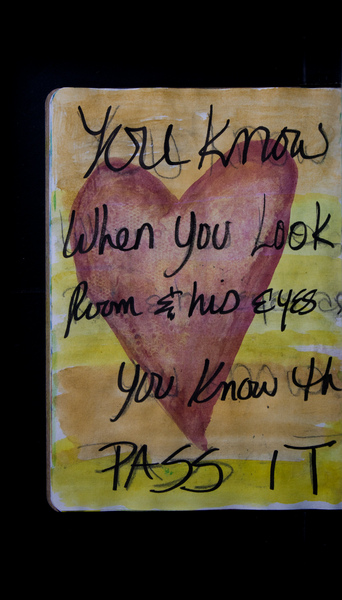 You Know
When You Look
Room & his eyes
You Know th
PASS IT